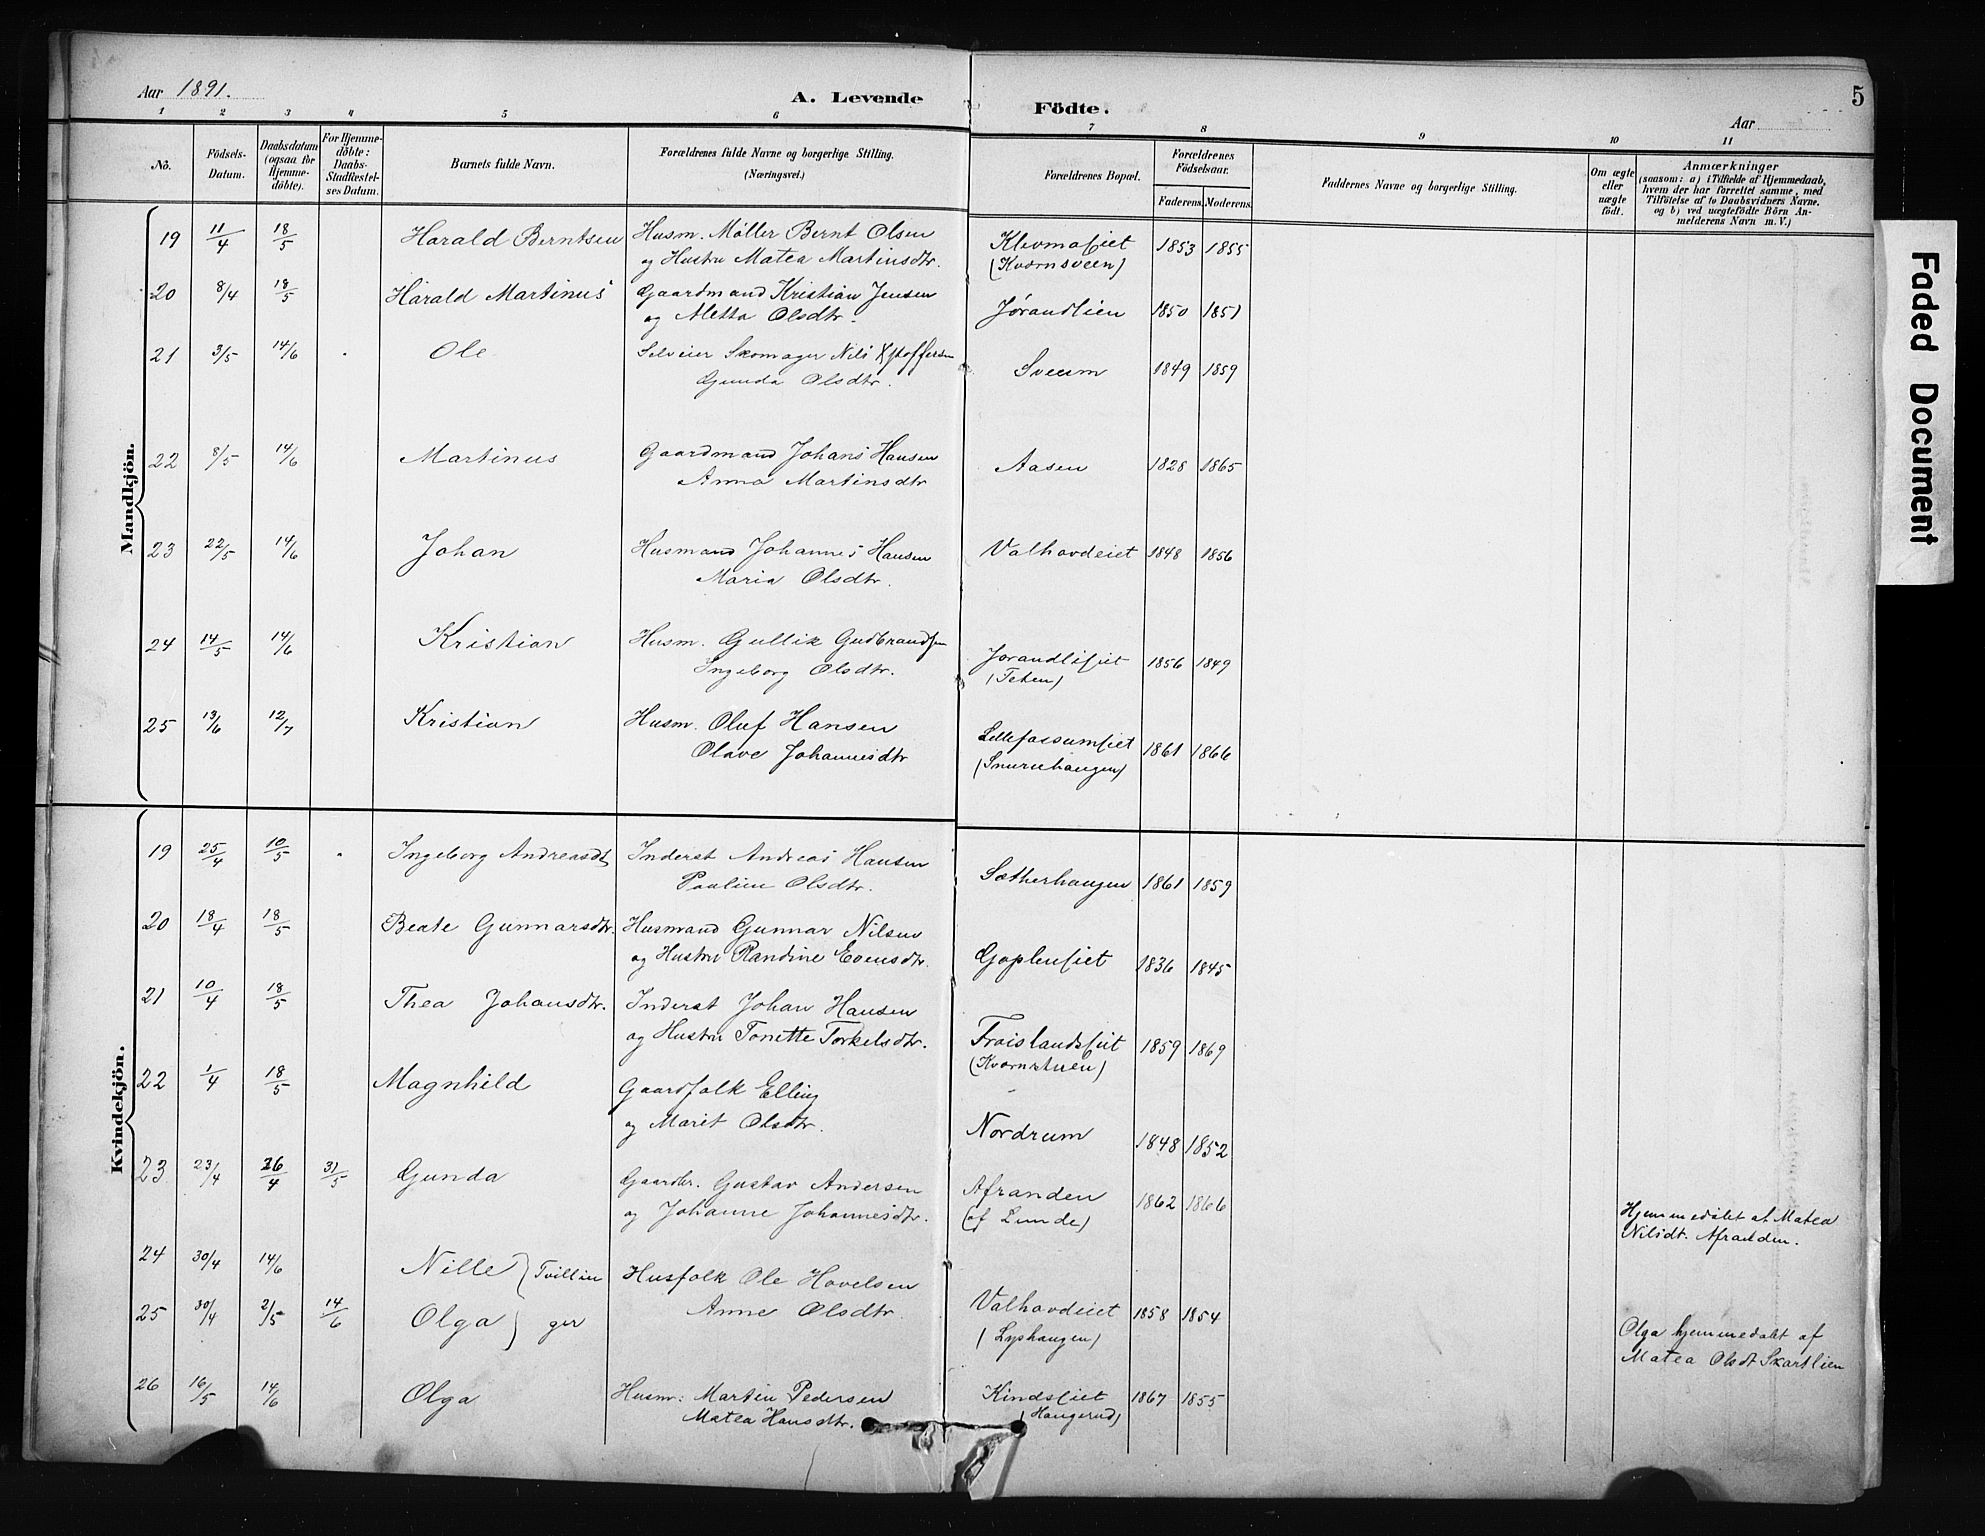 Aar 1891.
A. Levende Födte.
Aar
5
1 2 3 4 5 6 7 8 9 10 11
No.
Födsels-Datum.
Daabsdatum (ogsaa for Hjemme-döbte).
For Hjemme-döbte: Daabs-Stadfæstel-ses Datum.
Barnets fulde Navn.
Forældrenes fulde Navne og borgerlige Stilling. (Næringsvei.)
Forældrenes Bopæl.
Forældrenes Födselsaar.
Faderens. Moderens.
Faddernes Navne og borgerlige Stilling.
Om ægte eller uægte födt.
Anmærkninger
(saasom: a) i Tilfælde af Hjemmedaab, hvem der har forrettet samme, med Tilföielse af to Daabsvidners Navne. og b) ved uægtefödte Börn An-melderens Navn m. V.)
Mandkjön.
19 11/4 18/5 Harald Berntsen Husm. Møller Bernt Olsen Klevmofiet 1853 1855
og Hustru Matea Martinsdtr. (Kværnsveen)
20 8/4 18/5 Harald Martinus Gaardmand Kristian Jensen Jørandlien 1850 1851
og Mette Olsdtr.
21 3/5 14/6 Ole Selveier Skomager Nils Kristoffersen Sveum 1849 1859
Gunda Olsdtr.
22 8/5 14/6 Martinus Gaardmand Johans Hansen Aasen 1828 1865
Anna Martinsdtr
23 22/5 14/6 Johan Husmand Johannes Hansen Valhovdeiet 1848 1856
Maria Olsdtr.
24 14/5 14/6 Kristian Husm. Gullik Gudbrandsen 1856 1849
Ingeborg Olsdtr. (Teten)
25 13/6 12/7 Kristian Husm. Oluf Hansen Lillefossumfiet 1861 1866
Olave Johannesdtr (Snuruhaugen)
Kvindekjön.
19 25/4 10/5 Ingeborg Andreasdt Inderst Andreas Hansen Sætherhaugen 1861 1859
Pauline Olsdtr.
20 18/4 18/5 Beate Gunnarsdtr. Husmand Gunnar Nilsen Goplenfiet 1836 1845
og Hustru Randine Evensdtr.
21 10/4 18/5 Thea Johansdtr. Inderst Johan Hansen Froislandsfiet 1859 1869
og Hustru Tonette Torkelsdtr. (Kværnstuen)
22 1/4 18/5 Magnhild Gaardfolk Elling Nordrum 1848 1852
og Marit Olsdtr.
23 23/4 26/4 31/5 Gunda Gaardbr. Gustav Andersen Afranden 1862 1866
og Johanne Johannesdtr. (af Lunde)
Hjemmedøbt af Matea
Nilsdt. Afranden.
24 30/4 14/6 Nille } Tvillin Husfolk Ole Hovelsen Valhovdeiet 1858 1854
25 30/4 2/5 14/6 Olga } ger Anne Olsdtr (Lyshaugen)
Olga hjemmedøbt af
Matea Olsdt Skartlien
26 16/5 14/6 Olga Husm: Martin Pedersen Kindsfiet 1867 1855
Matea Hansdtr. (Haugerud)
Faded Document